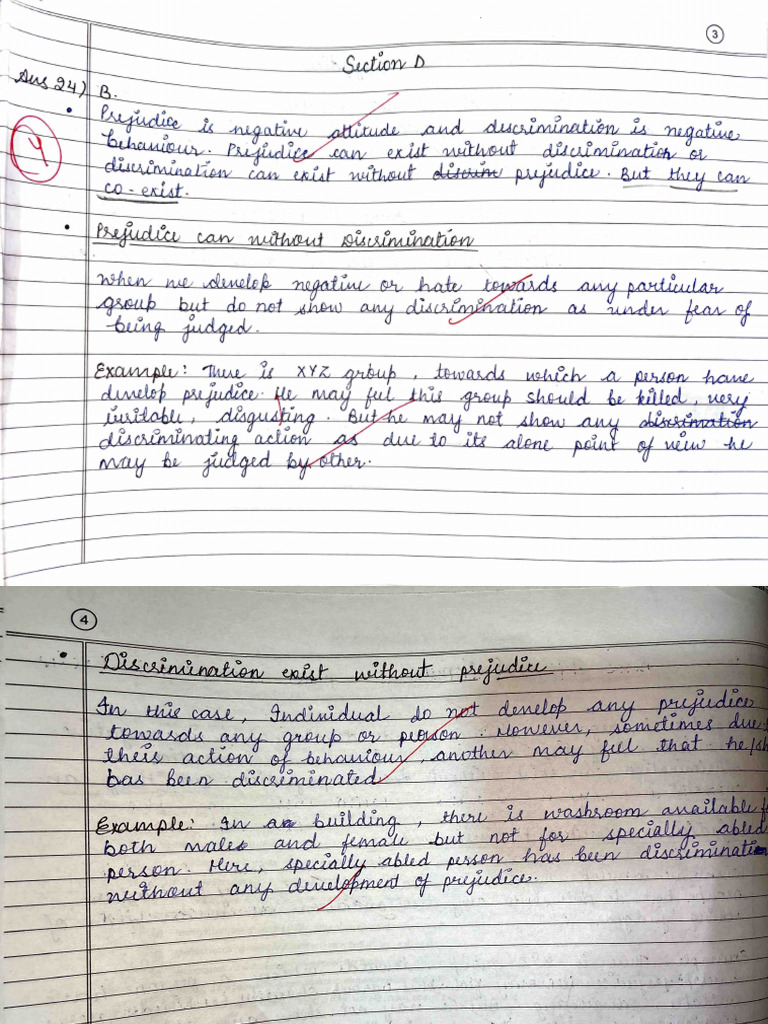 3
Section D
Ans 24) B.
• Prejudice is negative attitude and discrimination is negative
4
behaviour. Prejudice can exist without discrimination or
discrimination can exist without discrim prejudice. But they can
co-exist.
• Prejudice can without Discrimination
When we develop negative or hate towards any particular
group but do not show any discrimination as under fear of
being judged.
Example: There is XYZ group, towards which a person have
develop prejudice. He may feel this group should be killed, very
irritable, disgusting. But he may not show any discrimation
discriminating action as due to its alone point of view he
may be judged by other.
4
• Discrimination exist without prejudice
In this case, Individual do not develop any prejudice
towards any group or person. However, sometimes due
theis action of behaviour, another may feel that he/sh
has been discriminated.
Example: In a building, there is washroom available f
both males and female but not for specially abled
person. Here, specially abled person has been discrimination
without any development of prejudice.